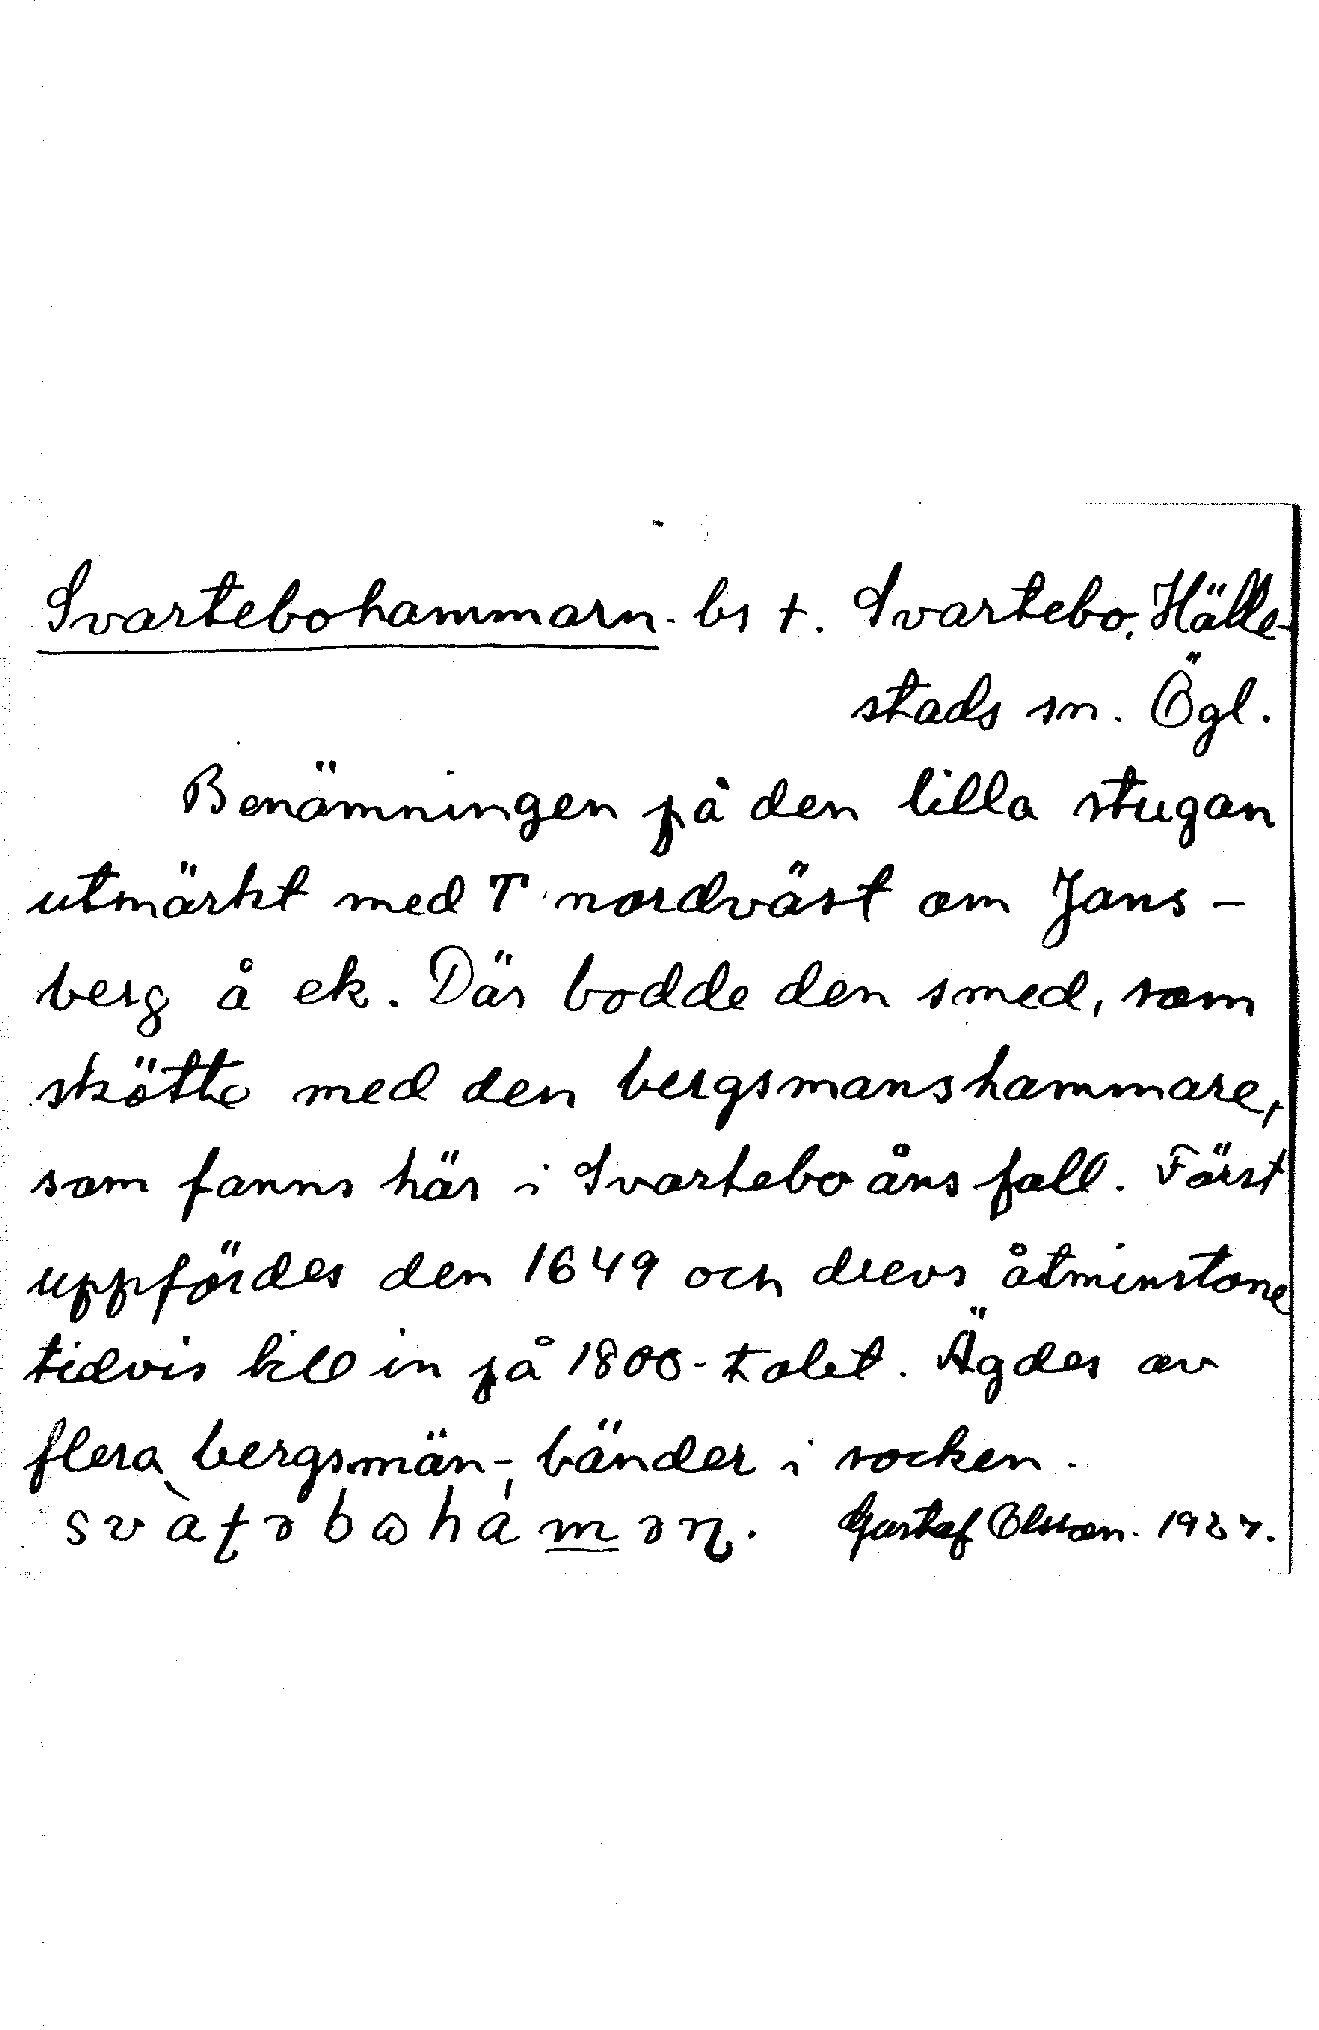 Svartebohammarn. bs t. Svartebo, Hälle-
stads sn. Ögl.
Benämningen på den lilla stugan
utmärkt med T nordväst om Jans-
berg å ek. Där bodde den smed, som
skötte med den bergsmanshammare,
som fanns här i Svartebo åns fall. Först
uppfördes den 1649 och drevs åtminstone
tidvis till in på 1800-talet. Ägdes av
flera bergsmän-, bönder i socken.
Gustaf Olsson. 1927.